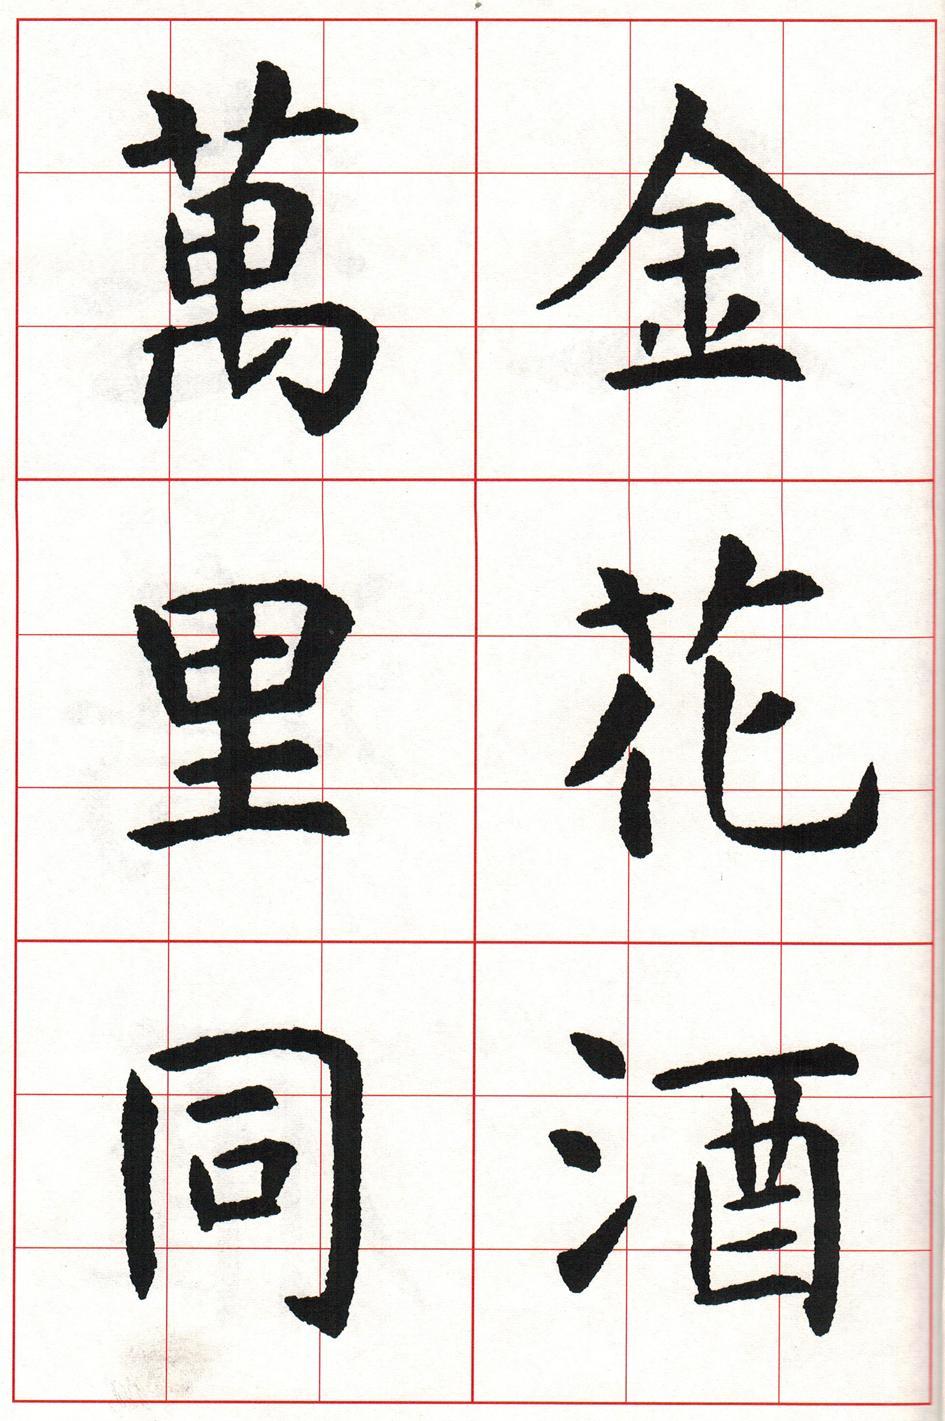 金花酒
萬里同